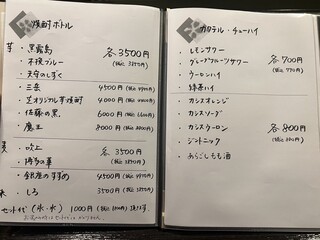 焼酎ボトル
芋・黒霧島 各3500円
・木挽ブルー (税込 3850円)
・天守のしずく
・三岳 4500円 (税込 4950円)
・芝オリジナル芋焼酎 4000円 (税込 4400円)
・佐藤の黒 6000円 (税込 6600円)
・魔王 8000円 (税込 8800円)
麦・吹上 各3500円
・博多の華 (税込 3850円)
・銀座のすずめ 4500円 (税込 4950円)
米・しろ 3500円 (税込 3850円)
セット代 (氷・水) 1000円 (税込 1100円) 頂きます。
カクテル・チューハイ
・レモンサワー
・グレープフルーツサワー 各700円
・ウーロンハイ (税込 770円)
・緑茶ハイ
・カシスオレンジ
・カシスソーダ
・カシスウーロン 各800円
・ジントニック (税込 880円)
・あらごしもも酒